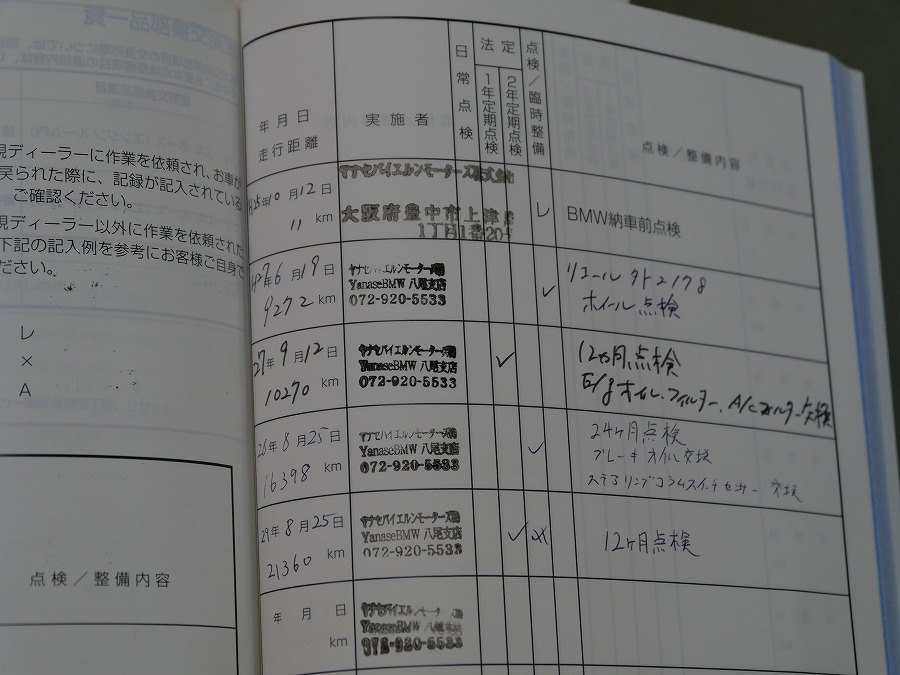 現ディーラーに作業を依頼され、お車が
戻られた際に、記録が記入されている
ご確認ください。
現ディーラー以外に作業を依頼された
下記の記入例を参考にお客様ご自身で
ださい。
レ
×
A
点検／整備内容
年月日
走行距離
実施者
日常点検
法定
1年定期点検
2年定期点検
点検／臨時整備
点検／整備内容
25年10月12日
11 km
ヤナセバイエルンモーターズ株式会社
大阪府豊中市上津島
1丁目1番20
レ
BMW納車前点検
27年6月19日
9272 km
ヤナセバイエルンモーターズ㈱
YanaseBMW 八尾支店
072-920-5533
リコール
ホイール点検
27年9月12日
10270 km
ヤナセバイエルンモーターズ㈱
YanaseBMW 八尾支店
072-920-5533
12ヵ月点検
E/gオイル、フィルター、A/Cフィルター交換
年8月25日
16398 km
ヤナセバイエルンモーターズ㈱
YanaseBMW 八尾支店
072-920-5533
24ヶ月点検
ブレーキオイル交換
ステアリングコラムスイッチセンサー 交換
29年8月25日
21360 km
ヤナセバイエルンモーターズ㈱
YanaseBMW 八尾支店
072-920-5533
12ヶ月点検
年月日
km
ヤナセバイエルンモーターズ㈱
YanaseBMW 八尾支店
072-920-5533